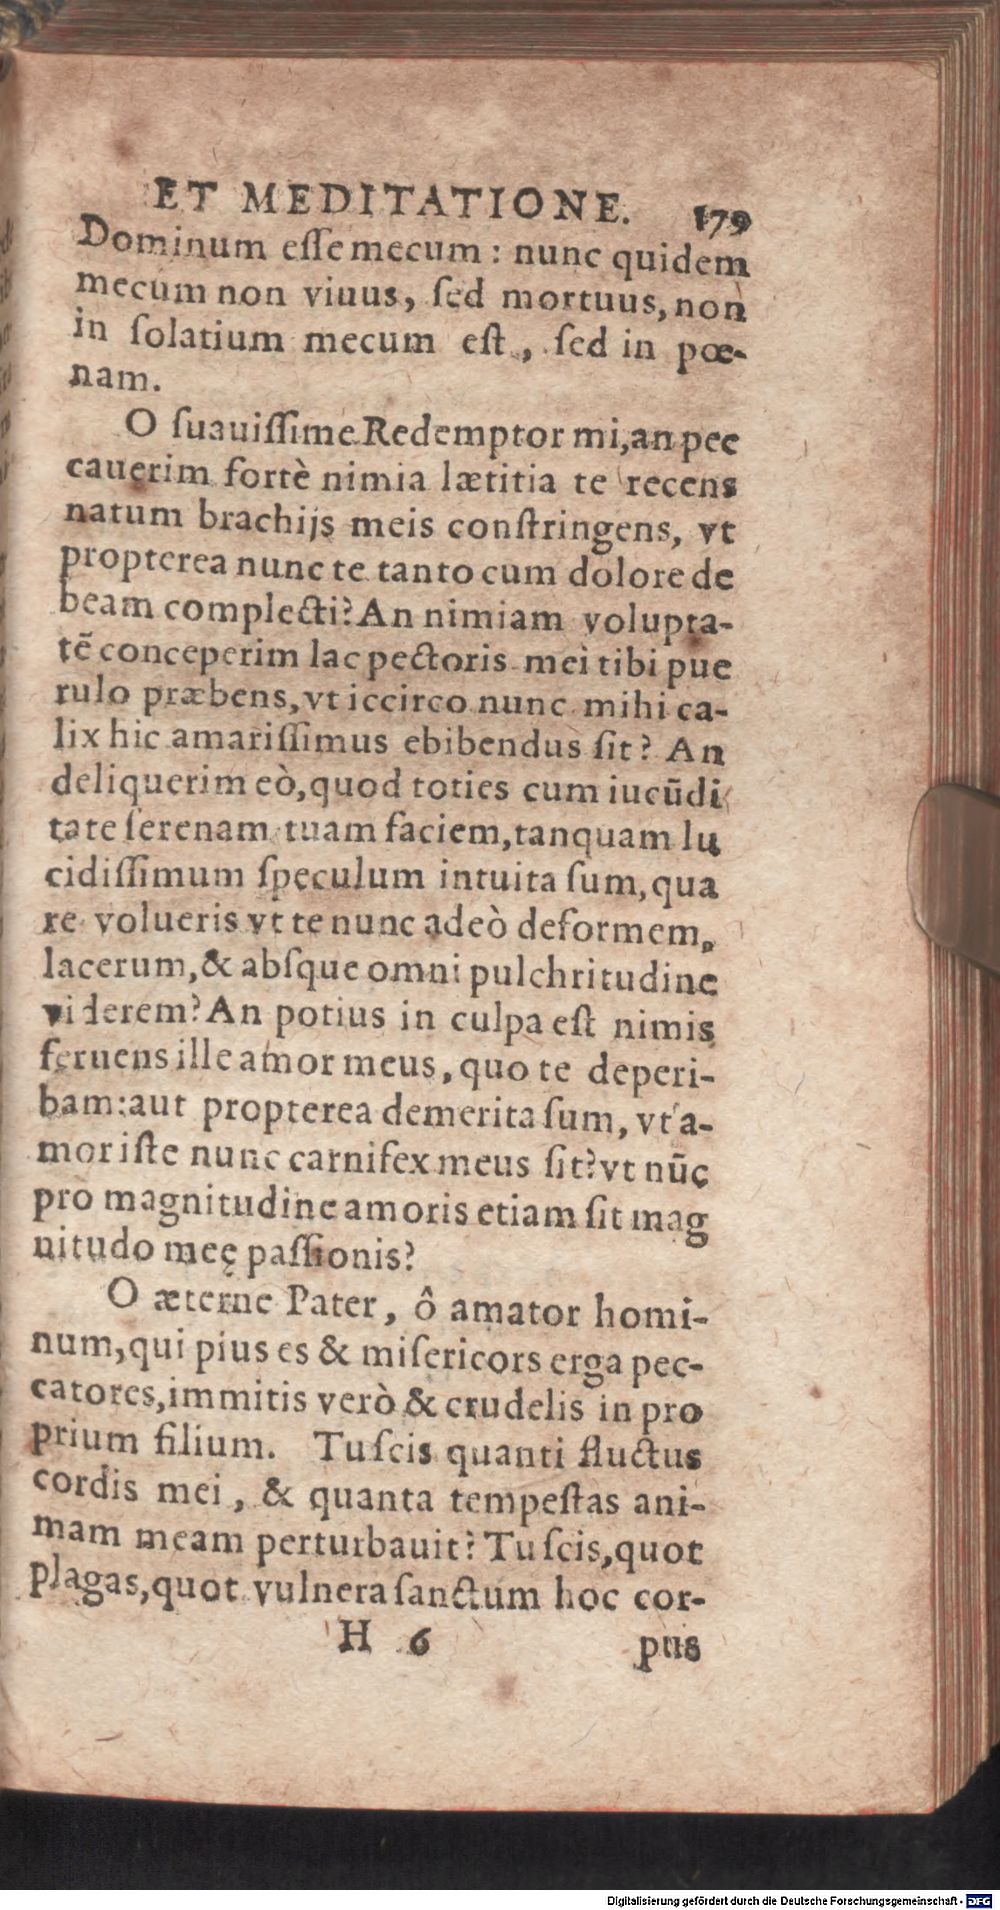 ET MEDITATIONE. 179
Dominum eſſe mecum : nunc quidem
mecum non viuus, ſed mortuus, non
in ſolatium mecum eſt, ſed in pœ-
nam.
O ſuauiſſime Redemptor mi, an pec
cauerim fortè nimia lætitia te recens
natum brachijs meis conſtringens, vt
propterea nunc te tanto cum dolore de
beam complecti? An nimiam volupta-
tē conceperim lac pectoris mei tibi pue
rulo præbens, vt iccirco nunc mihi ca-
lix hic amariſſimus ebibendus ſit? An
deliquerim eò, quod toties cum iucūdi
tate ſerenam tuam faciem, tanquam lu
cidiſſimum ſpeculum intuita ſum, qua
re volueris vt te nunc adeò deformem,
lacerum, & abſque omni pulchritudine
viderem? An potius in culpa eſt nimis
feruens ille amor meus, quo te deperi-
bam: aut propterea demerita ſum, vt a-
mor iſte nunc carnifex meus ſit? vt nūc
pro magnitudine amoris etiam ſit mag
nitudo meę paſſionis?
O æterne Pater, ô amator homi-
num, qui pius es & miſericors erga pec-
catores, immitis verò & crudelis in pro
prium filium. Tu ſcis quanti fluctus
cordis mei, & quanta tempeſtas ani-
mam meam perturbauit? Tu ſcis, quot
plagas, quot vulnera ſanctum hoc cor-
H 6 pus
Digitalisierung gefördert durch die Deutsche Forschungsgemeinschaft - DFG